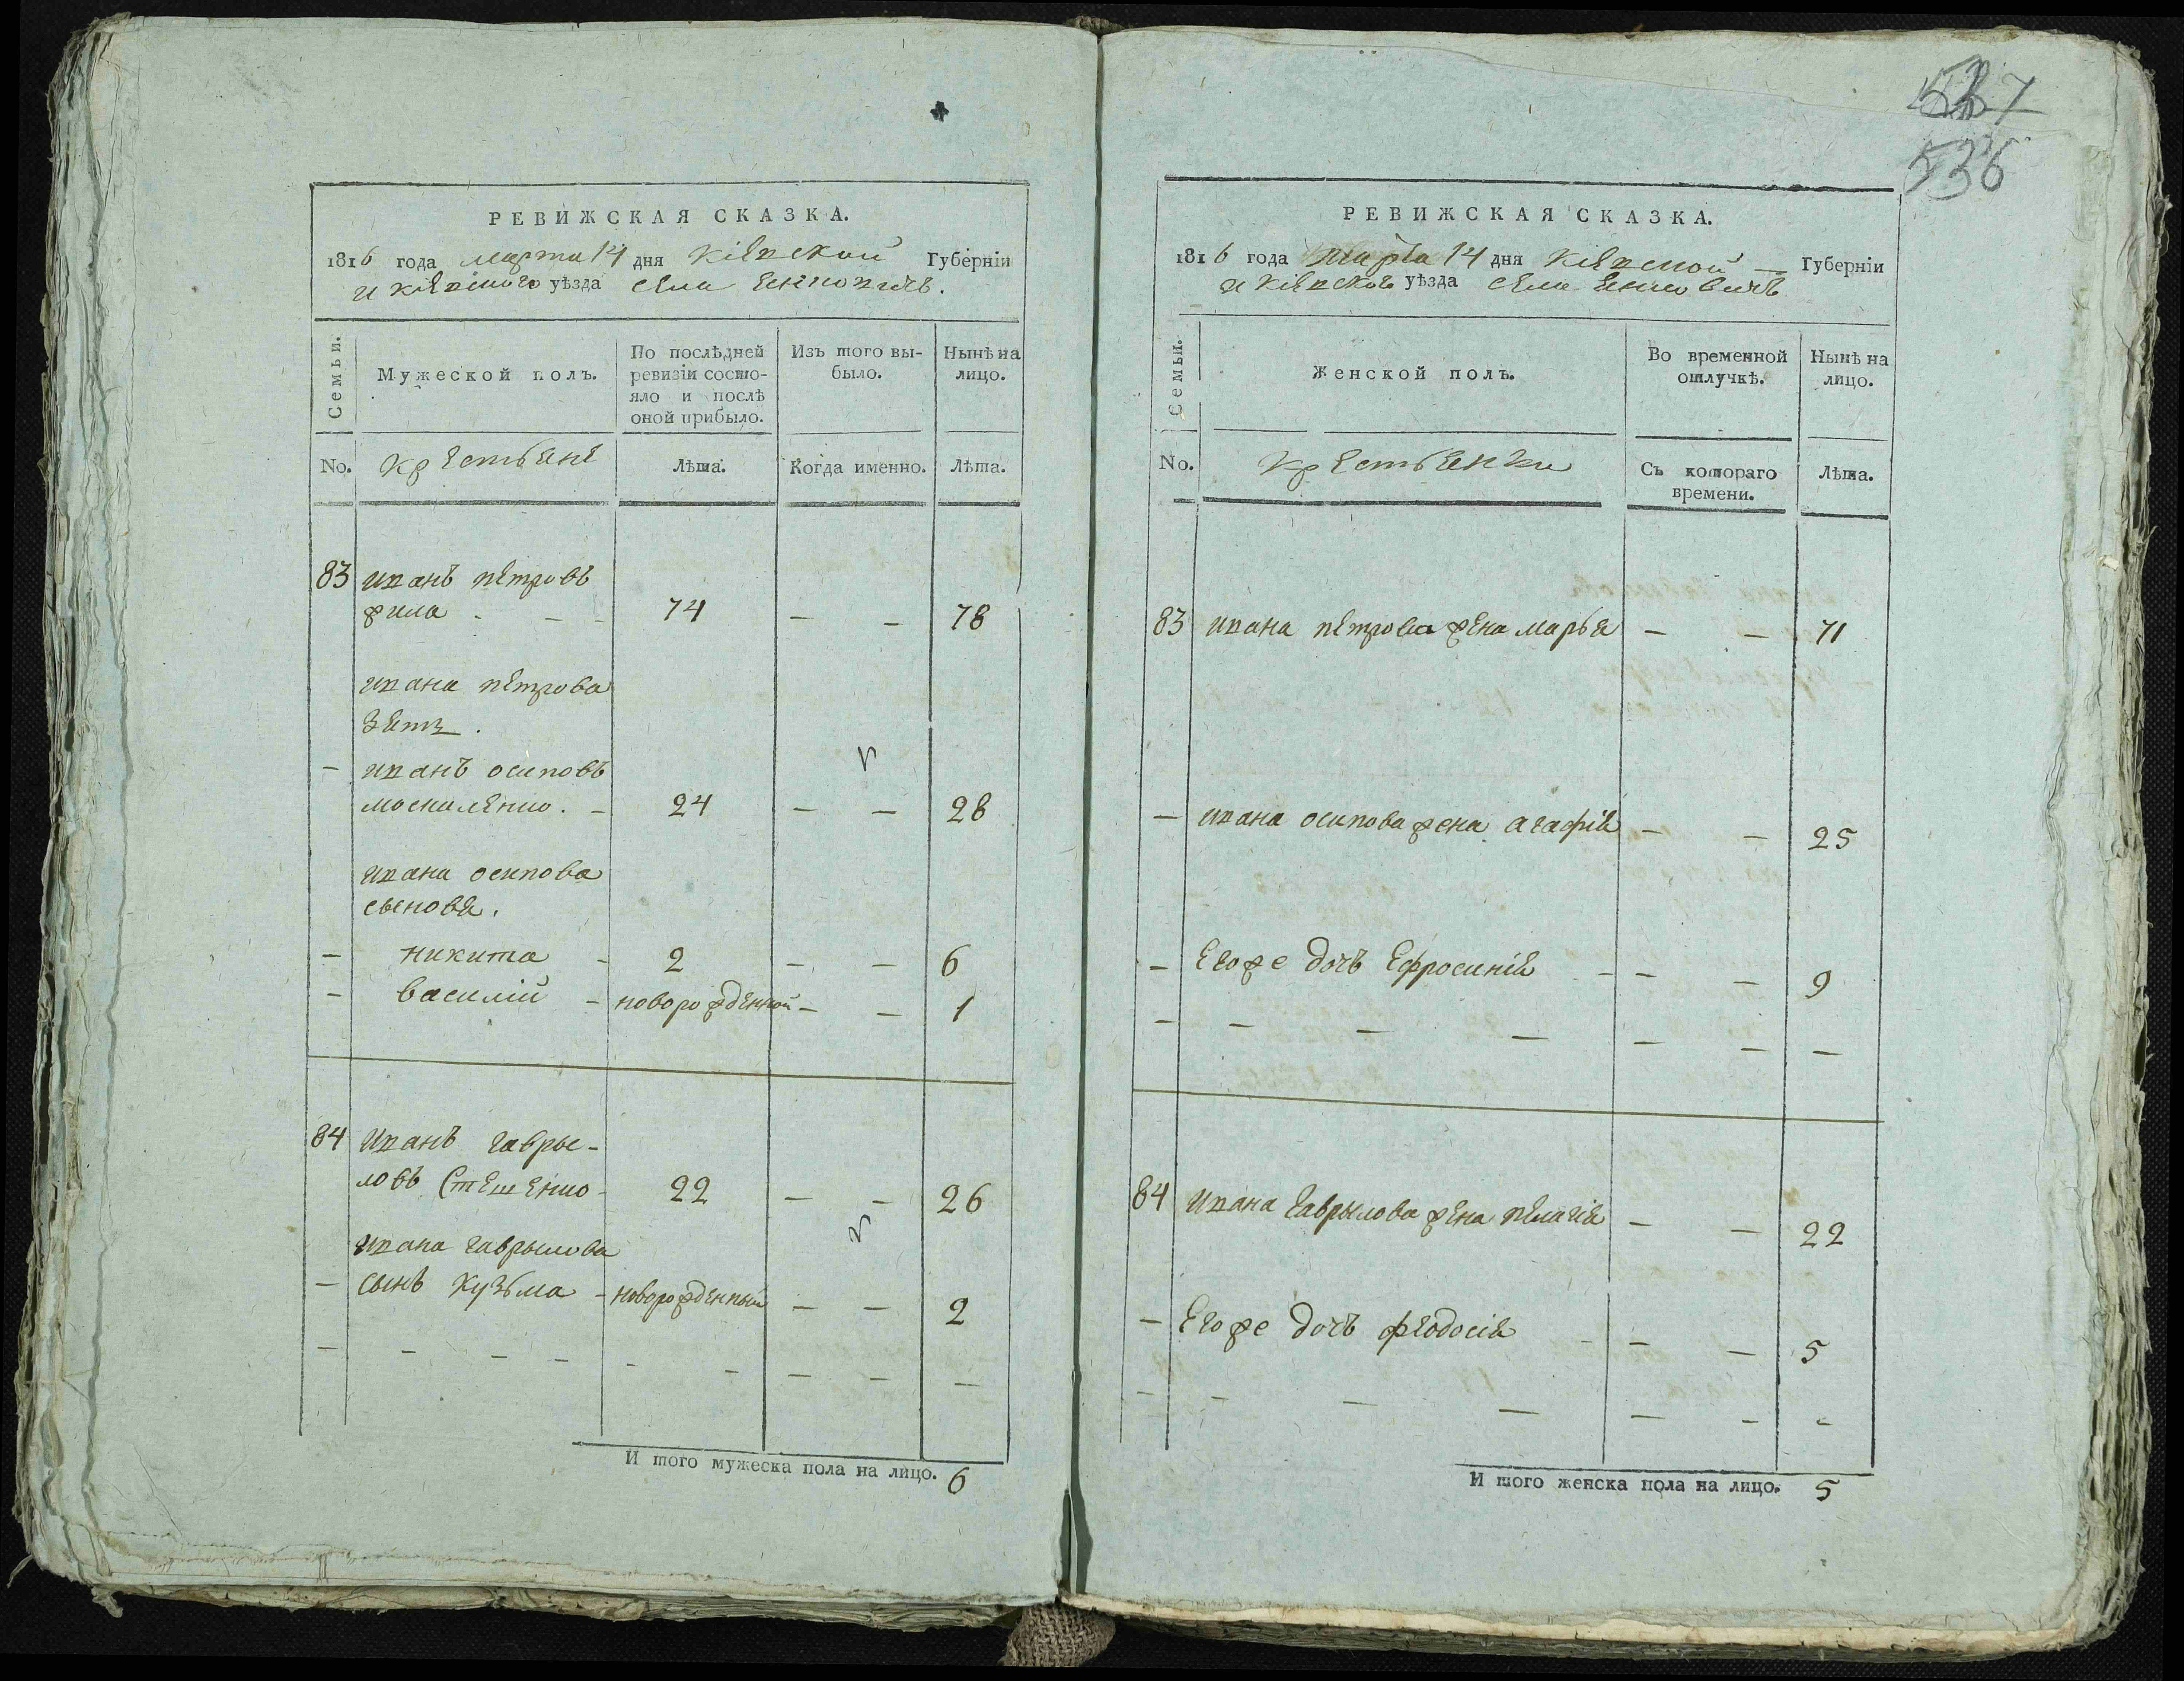 РЕВИЖСКАЯ СКАЗКА.
1816 года марта 14 дня Кіевской Губерніи
и Кіевскаго уѣзда села
Семьи.
Мужеской полъ.
По послѣдней ревизіи состояло и послѣ оной прибыло.
Изъ того выбыло.
Нынѣ на лицо.
No.
Крестьяне
Лѣта.
Когда именно.
Лѣта.
83 иванъ петровъ
74 — — 78
ивана петрова
зять.
— иванъ осиповъ
москаленко. — 24 — — 28
ивана осипова
сыновя.
— никита — 2 — — 6
— василій — новорожденной — — 1
84 Иванъ гаври-
ловъ Стешенко — 22 — — 26
ивана гаврылова
— сынъ Кузьма — новорожденный — — 2
— — — — — — — — —
И того мужеска пола на лицо. 6
527
536
РЕВИЖСКАЯ СКАЗКА.
1816 года Марта 14 дня Кіевской — Губерніи
и Кіевскаго уѣзда села
Семьи.
Женской полъ.
Во временной отлучкѣ.
Нынѣ на лицо.
No.
Крестьянки
Съ котораго времени.
Лѣта.
83 ивана петрова жена марья — — 71
— ивана осипова жена агафія — — 25
— Егоже дочь Ефросинія — — — 9
— — — — — — —
84 ивана гаврылова жена пелагія — — 22
— Егоже дочь феодосія — — — 5
— — — — — — —
И того женска пола на лицо. 5